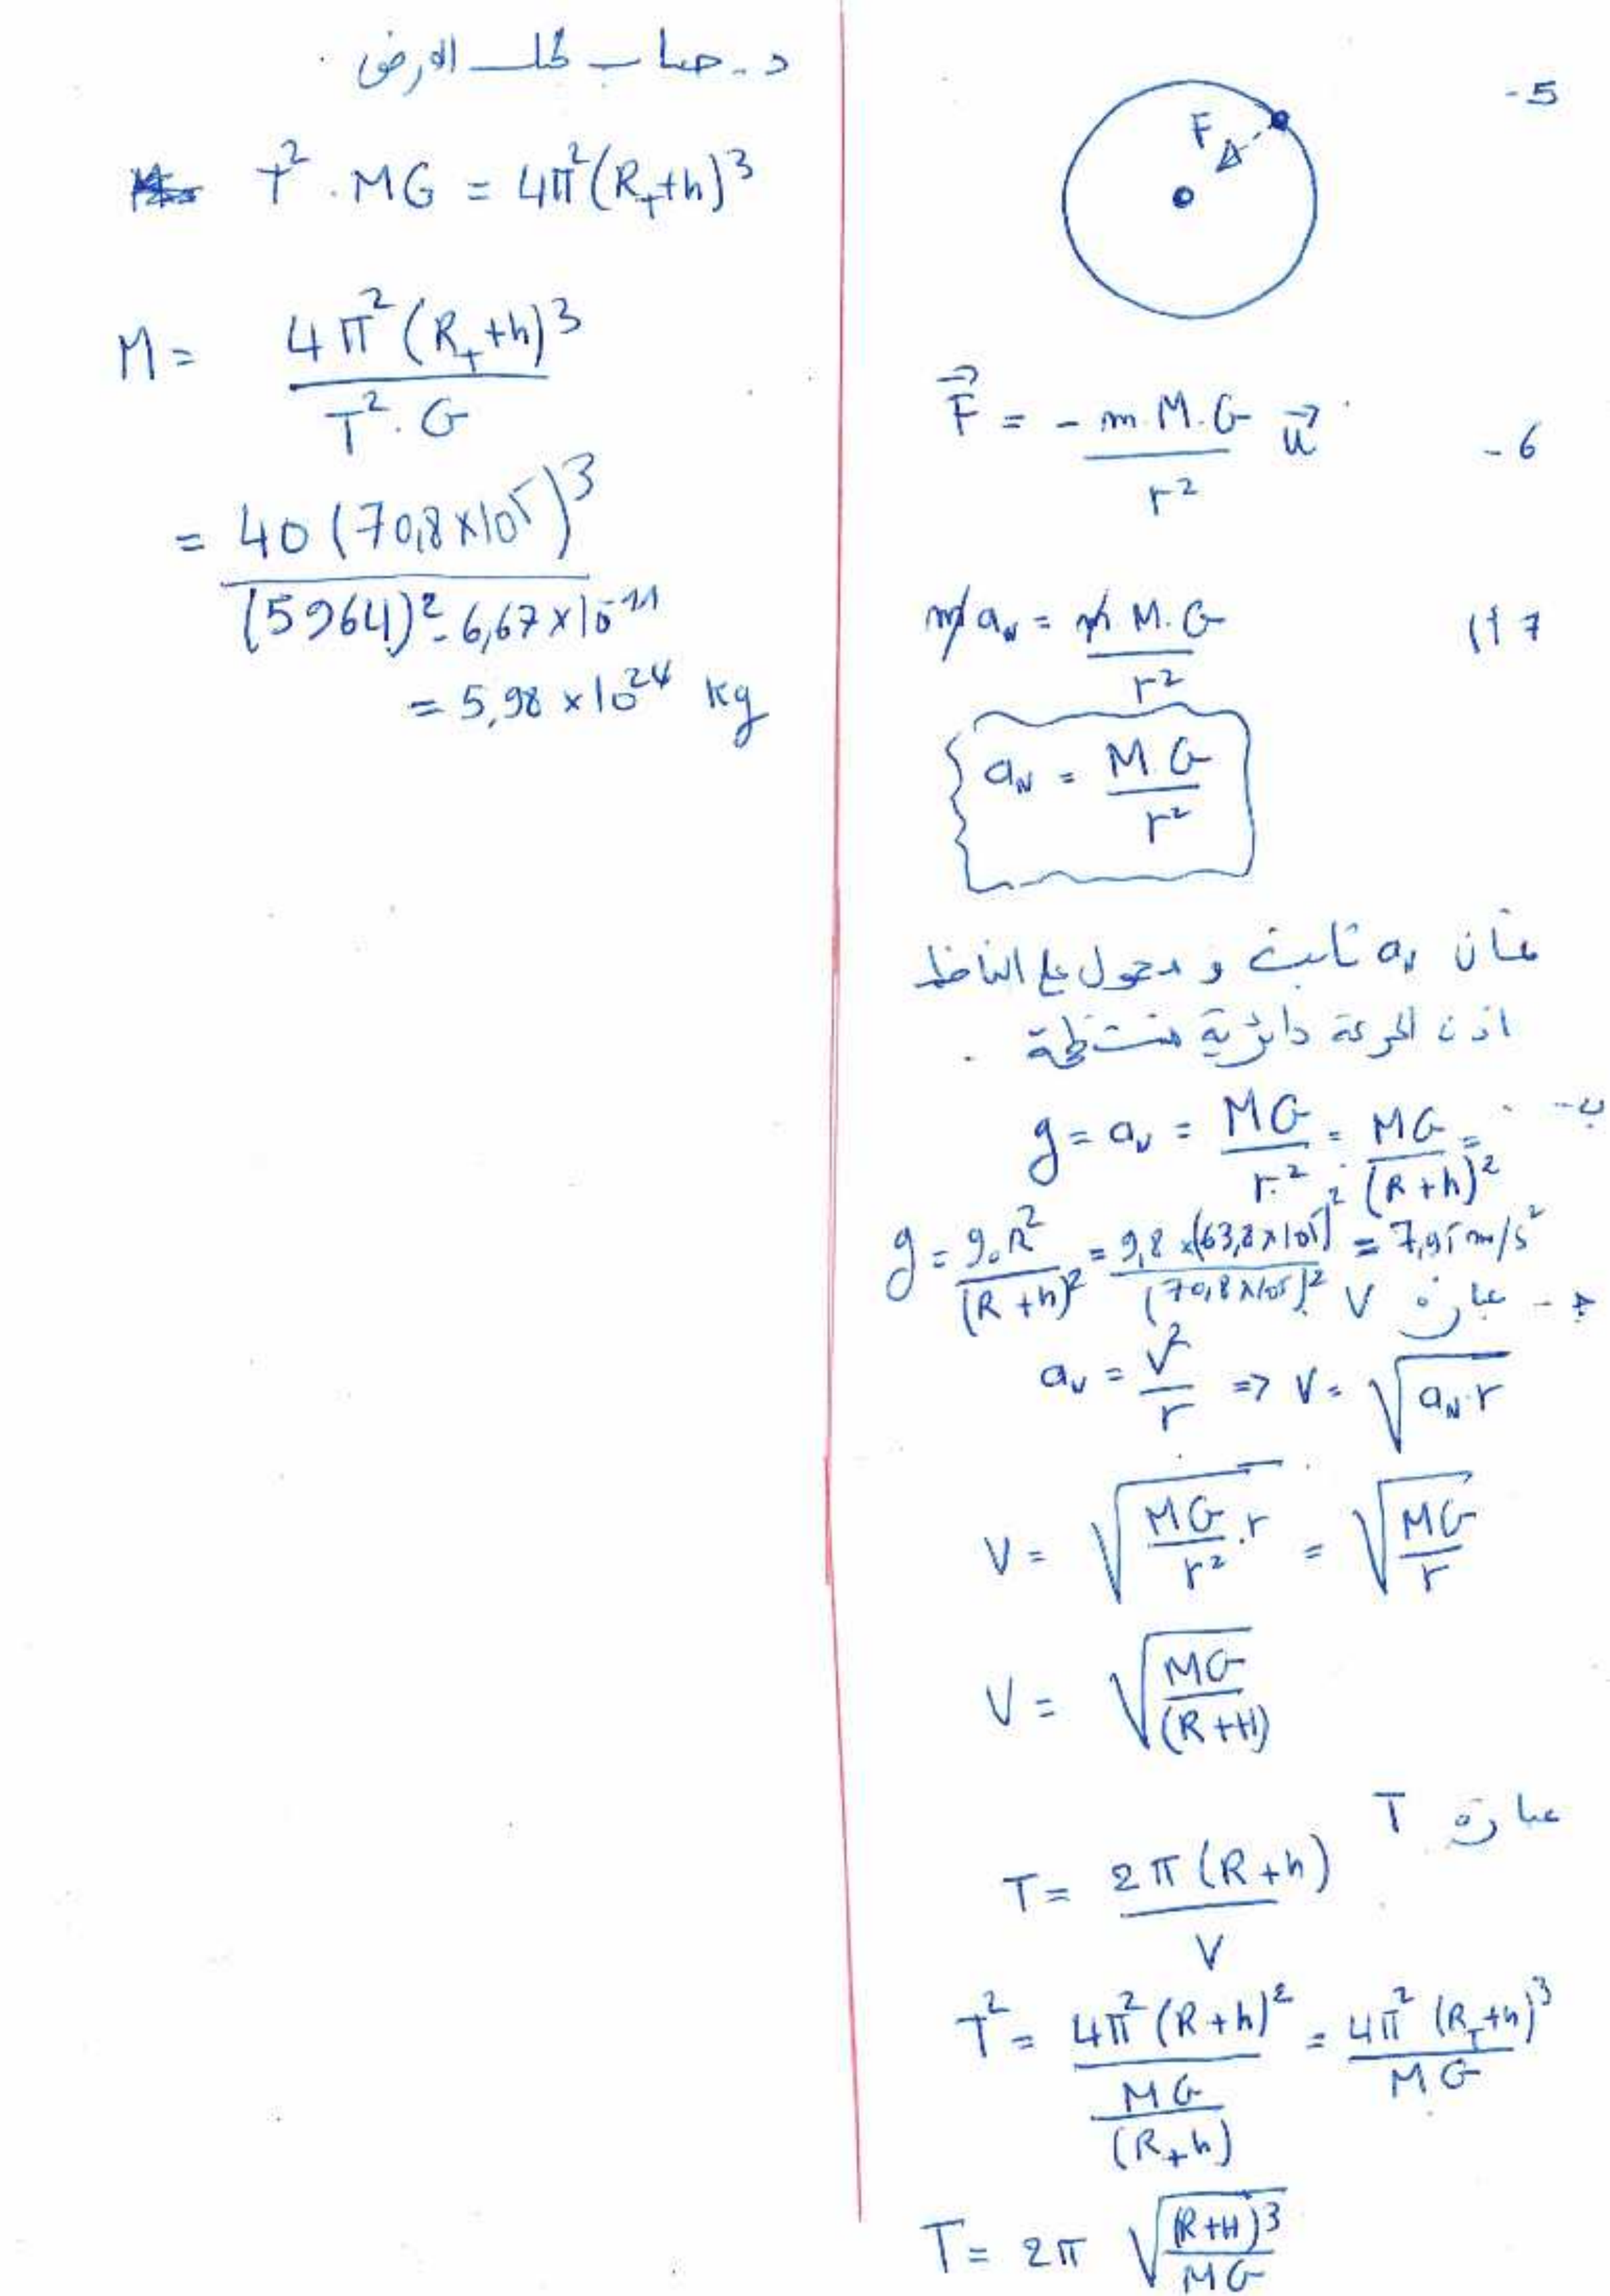 -5
F
-6
\vec{F} = - \frac{m.M.G}{r^2} \vec{u}
7 أ)
m a_N = \frac{m M.G}{r^2}
a_N = \frac{M.G}{r^2}
بمأن a_N ثابت و محمول على الناظم
اذن الحركة دائرية منتظمة .
ب- g = a_N = \frac{MG}{r^2} = \frac{MG}{(R+h)^2} =
g = \frac{g_0 R^2}{(R+h)^2} = \frac{9,8 × (63,8×10^5)^2}{(70,8×10^5)^2} = 7,95 m/s^2
ج - عبارة V
a_N = \frac{V^2}{r} => V = \sqrt{a_N.r}
V = \sqrt{\frac{MG}{r^2}.r} = \sqrt{\frac{MG}{r}}
V = \sqrt{\frac{MG}{(R+H)}}
عبارة T
T = \frac{2π(R+h)}{V}
T^2 = \frac{4π^2(R+h)^2}{\frac{MG}{(R+h)}} = \frac{4π^2(R_T+h)^3}{MG}
T = 2π \sqrt{\frac{(R+H)^3}{MG}}
د- حساب كتلة الارض .
T^2 . MG = 4π^2(R_T+h)^3
M = \frac{4π^2(R_T+h)^3}{T^2.G}
= \frac{40(70,8×10^5)^3}{(5964)^2.6,67×10^{-11}}
= 5,98 ×10^{24} kg